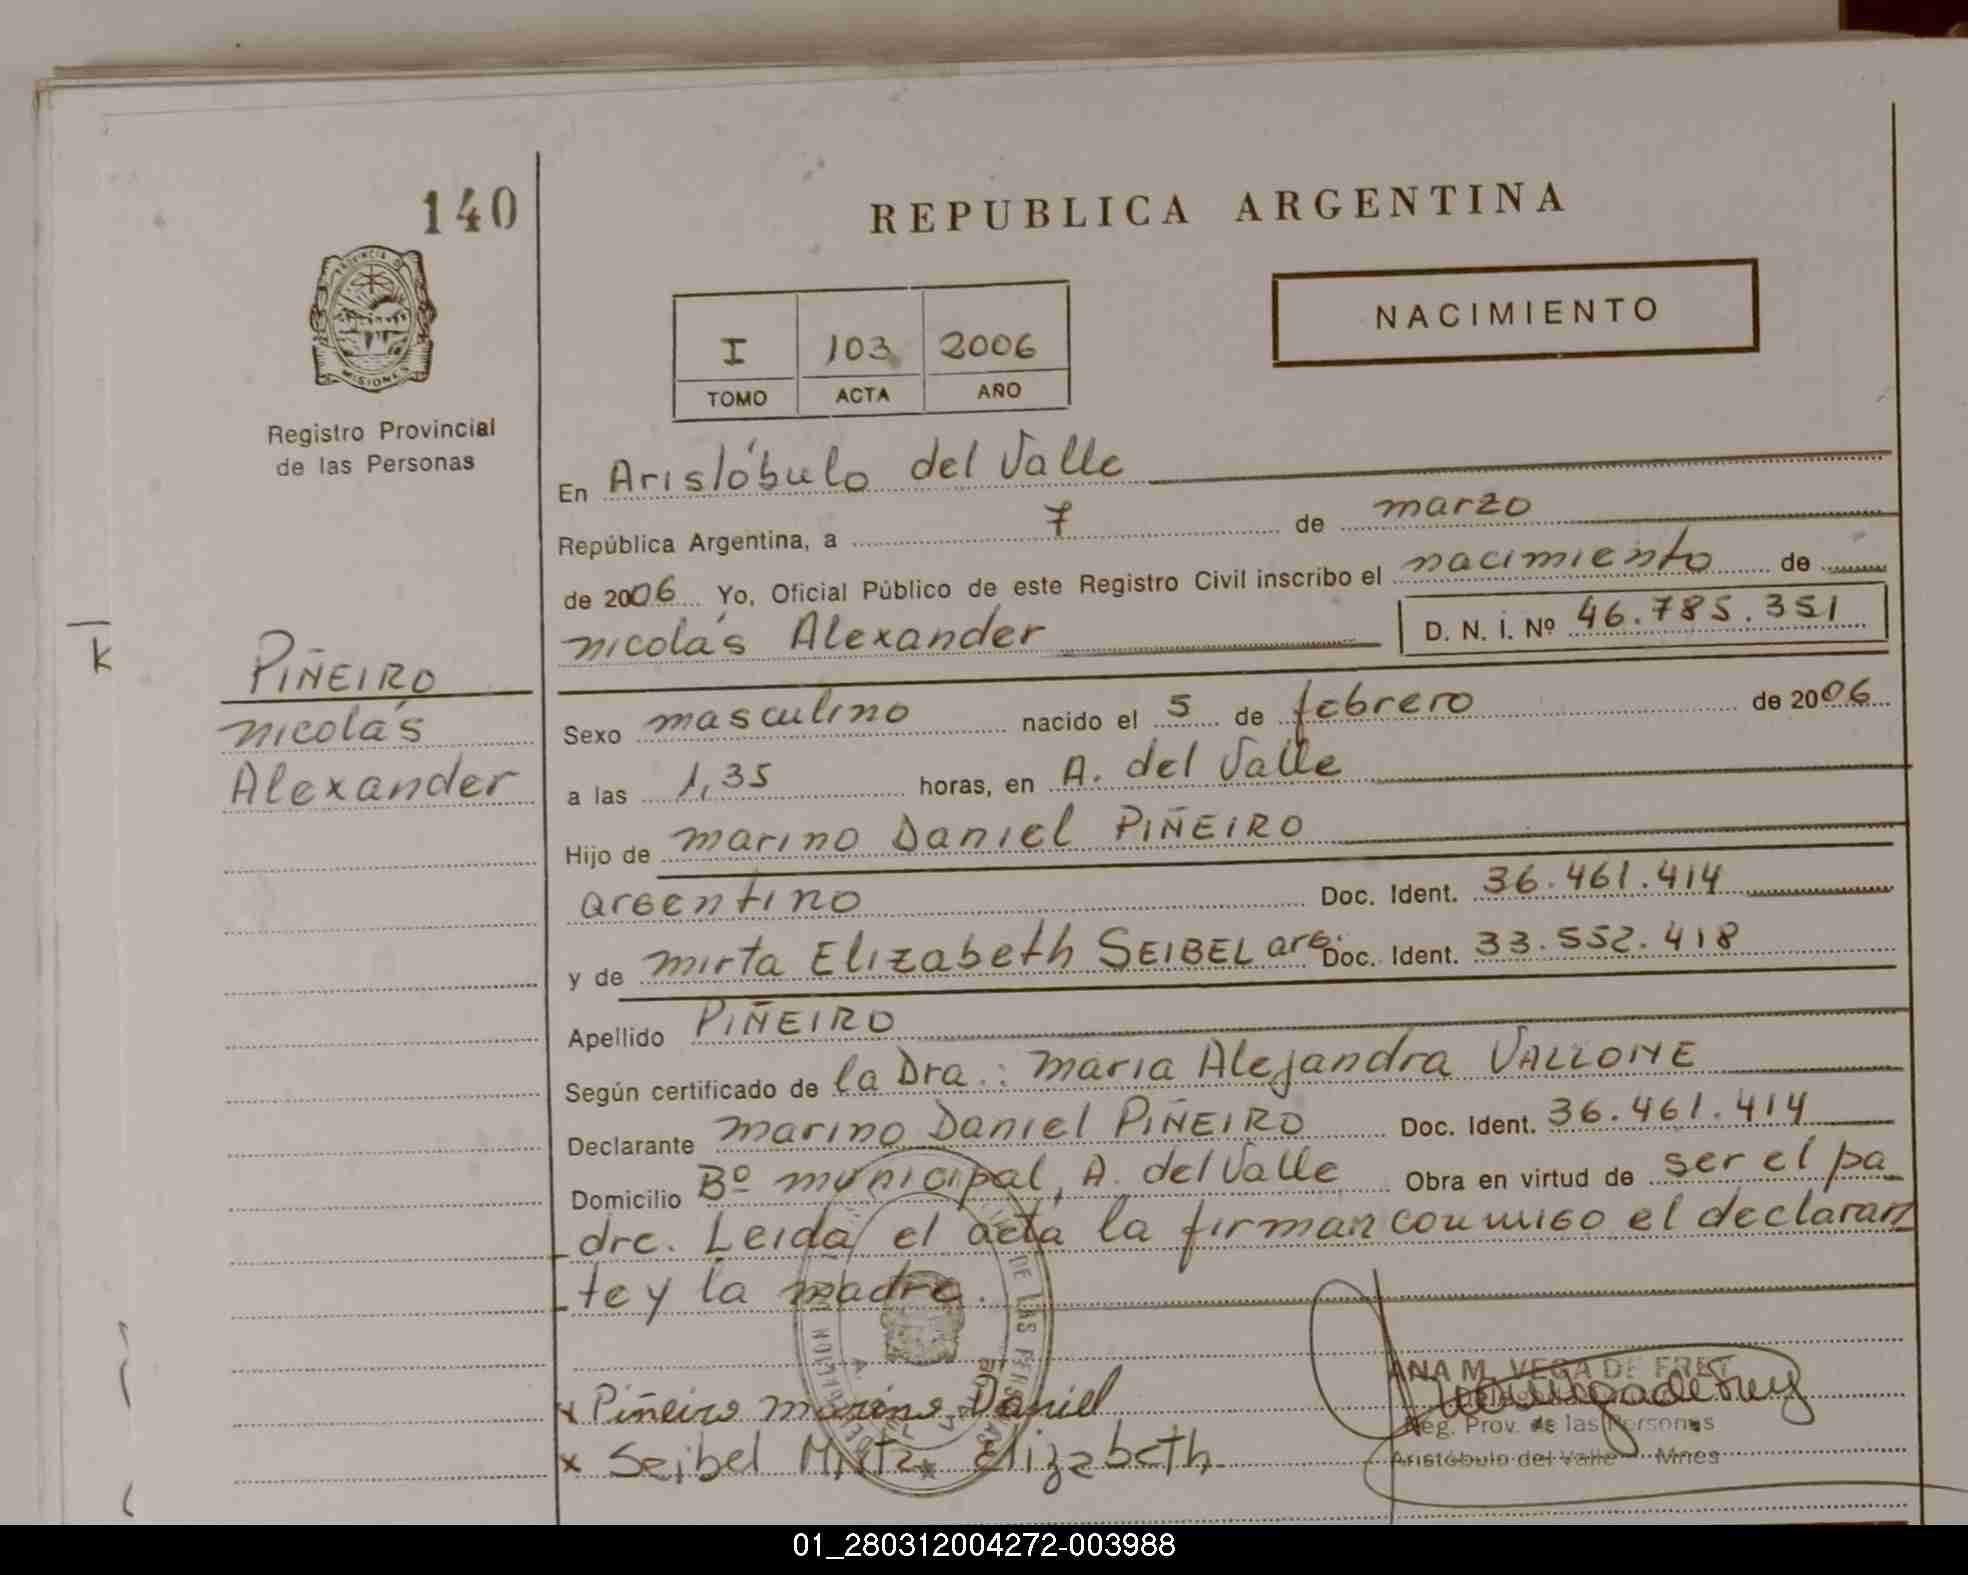 140
REPUBLICA ARGENTINA
NACIMIENTO
I 103 2006
TOMO ACTA AÑO
PROVINCIA DE
MISIONES
Registro Provincial
de las Personas
En Aristóbulo del Valle
República Argentina, a 7 de marzo
de 2006 Yo, Oficial Público de este Registro Civil inscribo el nacimiento de
nicolás Alexander D. N. I. Nº 46.785.351
K
PIÑEIRO
nicolás
Alexander
Sexo masculino nacido el 5 de febrero de 2006
a las 1,35 horas, en A. del Valle
Hijo de marino Daniel PIÑEIRO
argentino Doc. Ident. 36.461.414
y de mirta Elizabeth SEIBEL arg. Doc. Ident. 33.552.418
Apellido PIÑEIRO
Según certificado de la Dra.: maria Alejandra VALLONE
Declarante marino Daniel PIÑEIRO Doc. Ident. 36.461.414
Domicilio Bº municipal, A. del Valle Obra en virtud de ser el pa
dre. Leida el acta la firman conmigo el declaran
te y la madre.
DE LAS PERSONAS
x Piñeiro marino Daniel
x Seibel Mirta Elizabeth
ANA M. VEGA DE FREY
Reg. Prov. de las Personas
Aristóbulo del Valle - Mnes
01_280312004272-003988